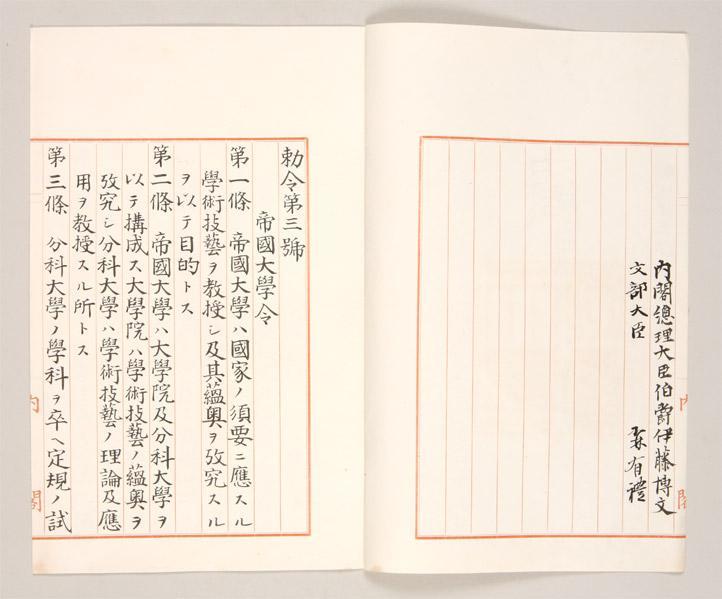 内閣總理大臣伯爵伊藤博文
文部大臣 森有禮
勅令第三號
帝國大學令
第一條 帝國大學ハ國家ノ須要ニ應スル
學術技藝ヲ教授シ及其蘊奧ヲ攷究スル
ヲ以テ目的トス
第二條 帝國大學ハ大學院及分科大學ヲ
以テ構成ス大學院ハ學術技藝ノ蘊奧ヲ
攷究シ分科大學ハ學術技藝ノ理論及應
用ヲ教授スル所トス
第三條 分科大學ノ學科ヲ卒ヘ定規ノ試
内閣
内閣